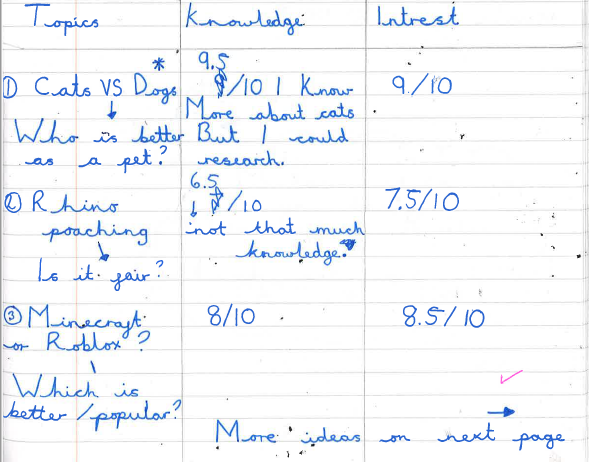 Topics Knowledge Intrest
① Cats VS Dogs * 9.5/10 I Know 9/10
More about cats
Who is better But I could
as a pet? research.
② Rhino 6.5/10 7.5/10
poaching not that much
knowledge.
Is it fair?
③ Minecraft 8/10 8.5/10
or Roblox?
Which is
better/popular?
More ideas on next page